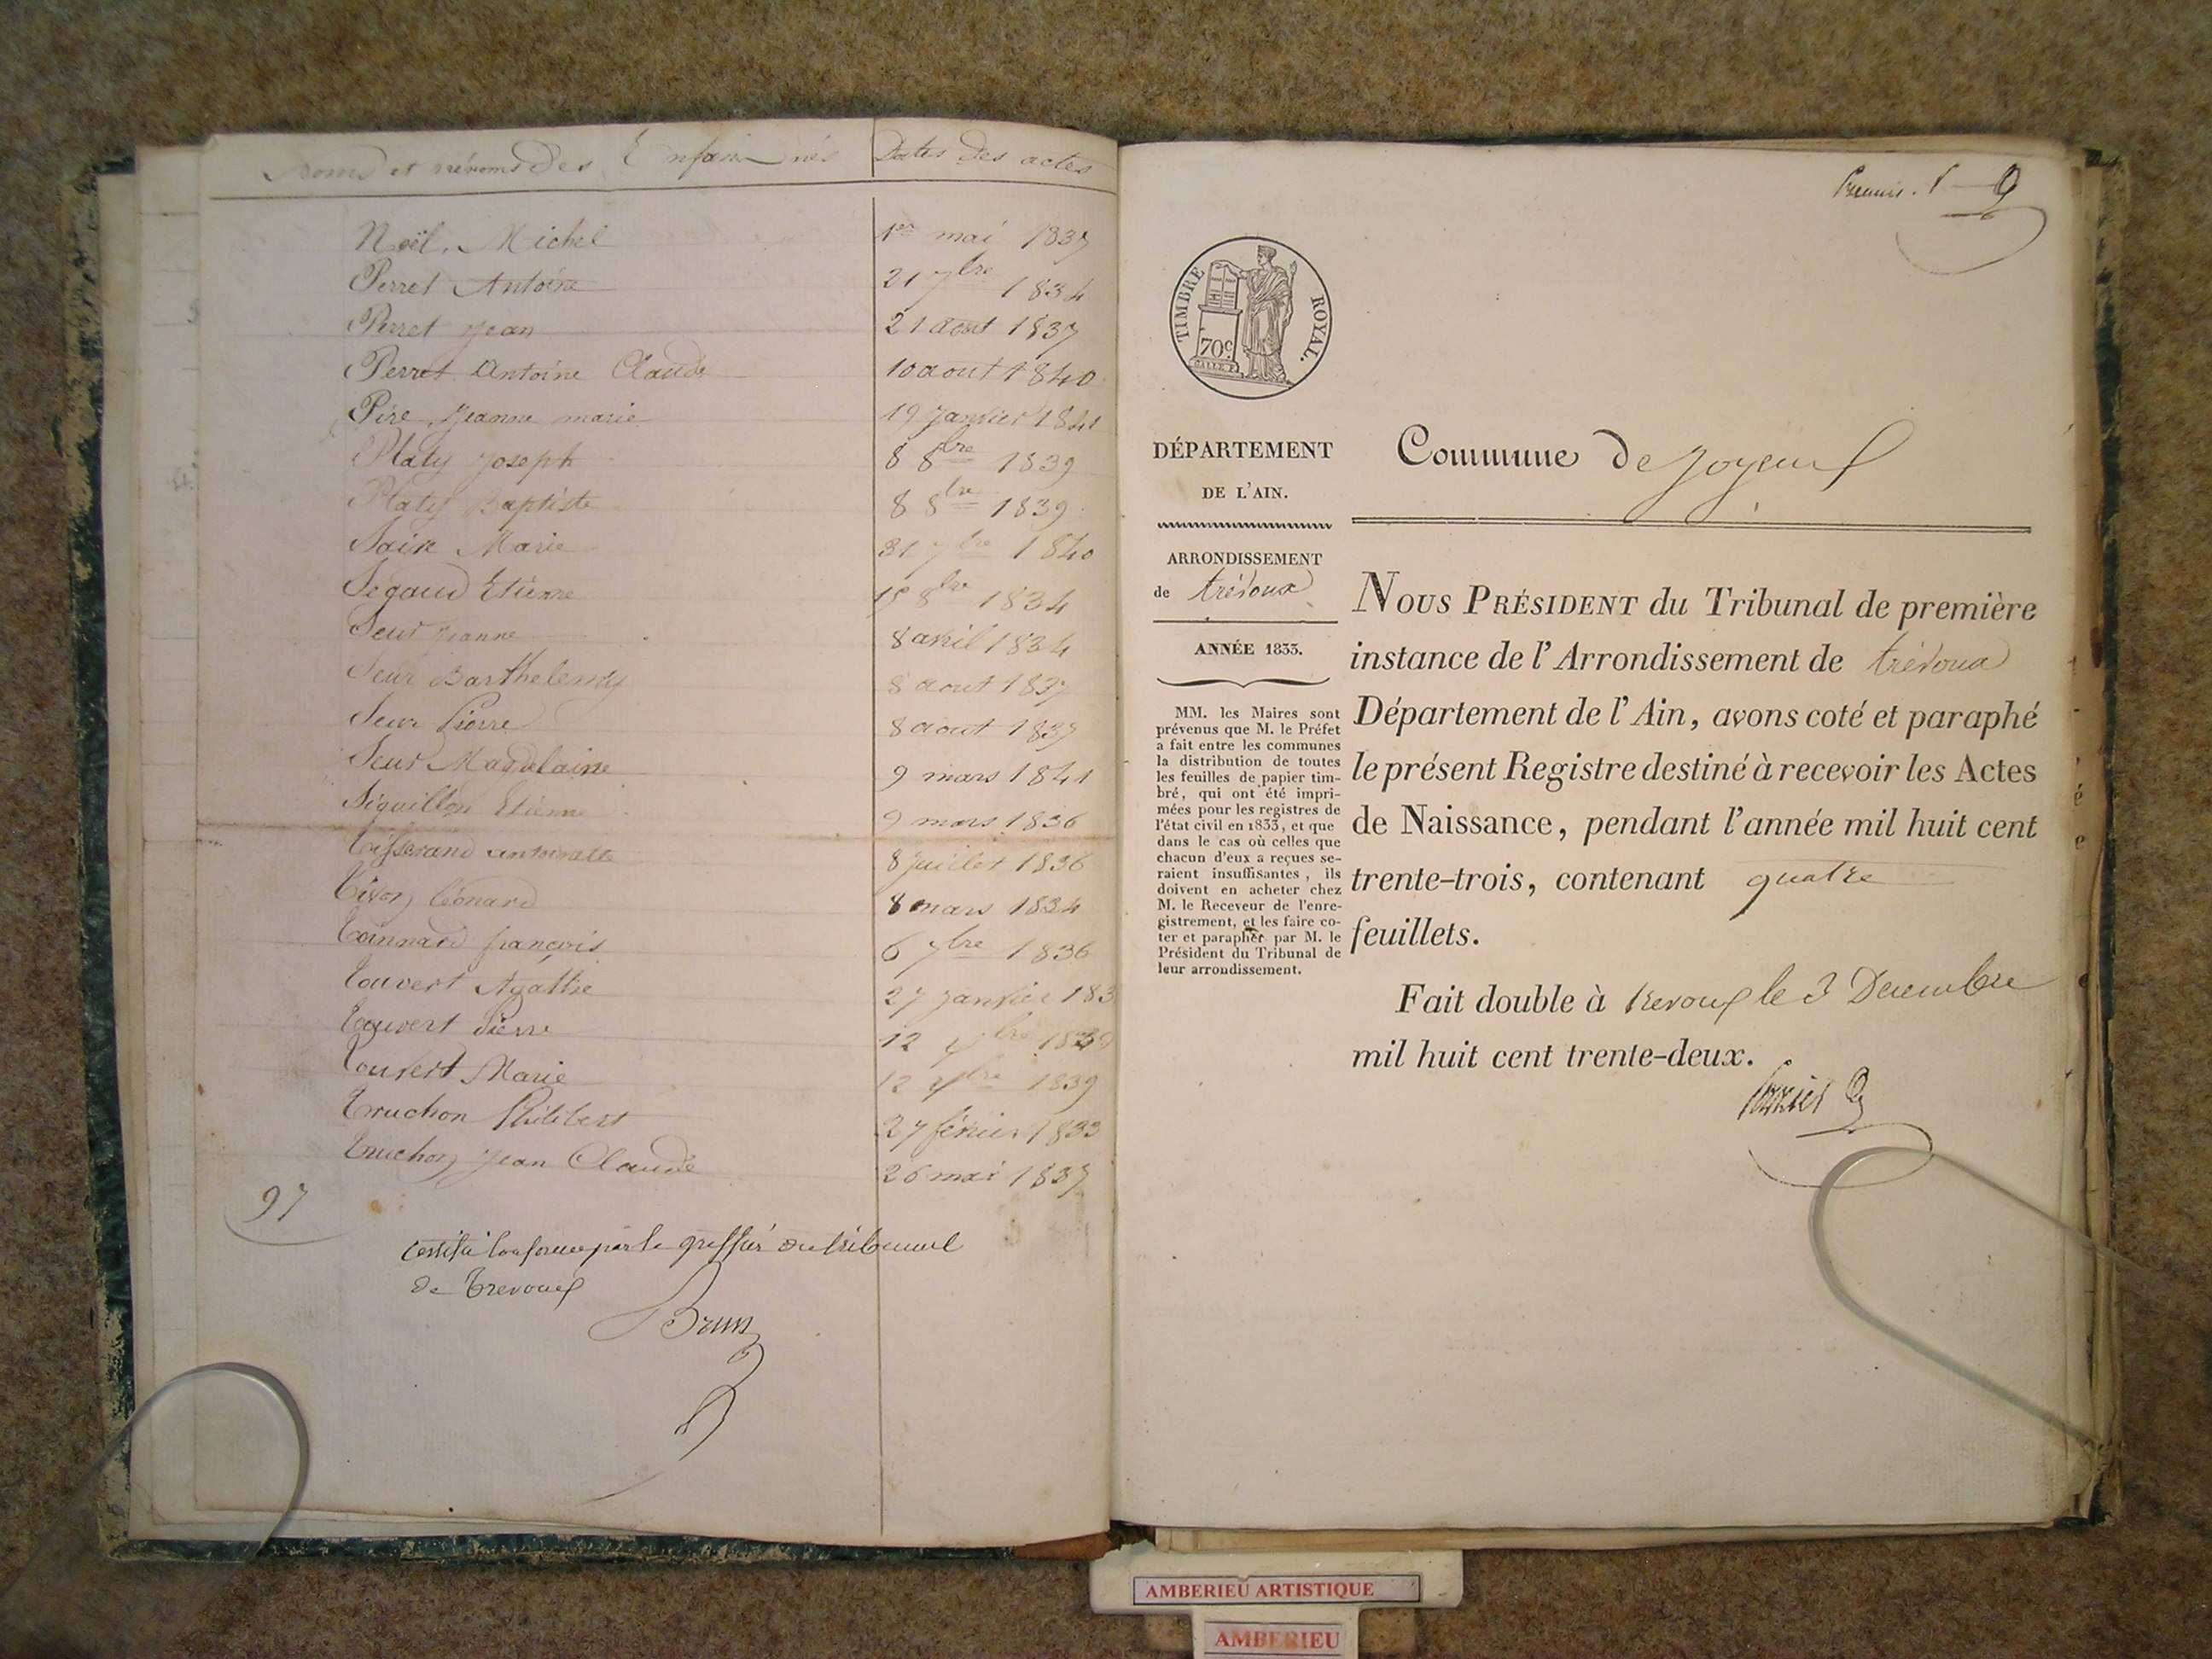 Noms et prénoms des Enfans nés Dates des actes
Noël Michel 1er mai 1837
Perret Antoine 21 7bre 1834
Perret Jean 21 aout 1837
Perret Antoine Claude 10 aout 1840
Pire Jeanne marie 19 janvier 1841
Platy Joseph 8 8bre 1839
Platy Baptiste 8 8bre 1839
Saix Marie 7bre 1840
Segaud Etienne 8bre 1834
Seur Jeanne 8 avril 1834
Seur Barthelemy 8 aout 1837
Seur Pierre 8 aout 1837
Seur Magdelaine 9 mars 1841
Siguillon Etienne 9 mars 1836
Tisserand antoinette 8 juillet 1836
Tivon léonard 8 mars 1834
Toinnard françois 6 7bre 1836
Touvert Agathe 27 janvier 183
Touvert Pierre 12
Touvert Marie 12 1839
Truchon Philibert 27 février 1833
Truchon Jean Claude 26 mai 1837
97
Certifié Conforme par le greffier du tribunal
de Trevoux
Brun
Premier.
TIMBRE ROYAL.
70c
DÉPARTEMENT
DE L'AIN.
ARRONDISSEMENT
de trévoux
ANNÉE 1833.
MM. les Maires sont
prévenus que M. le Préfet
a fait entre les communes
la distribution de toutes
les feuilles de papier tim-
bré, qui ont été impri-
mées pour les registres de
l'état civil en 1833, et que
dans le cas où celles que
chacun d'eux a reçues se-
raient insuffisantes, ils
doivent en acheter chez
M. le Receveur de l'enre-
gistrement, et les faire co-
ter et parapher par M. le
Président du Tribunal de
leur arrondissement.
Commune de Joyeux
NOUS PRÉSIDENT du Tribunal de première
instance de l'Arrondissement de trévoux
Département de l'Ain, avons coté et paraphé
le présent Registre destiné à recevoir les Actes
de Naissance, pendant l'année mil huit cent
trente-trois, contenant quatre
feuillets.
Fait double à trevoux le 3 Decembre
mil huit cent trente-deux.
AMBERIEU ARTISTIQUE
AMBERIEU